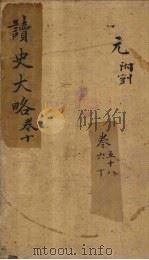 元
卷
五十八
六十
讀史大略
卷十